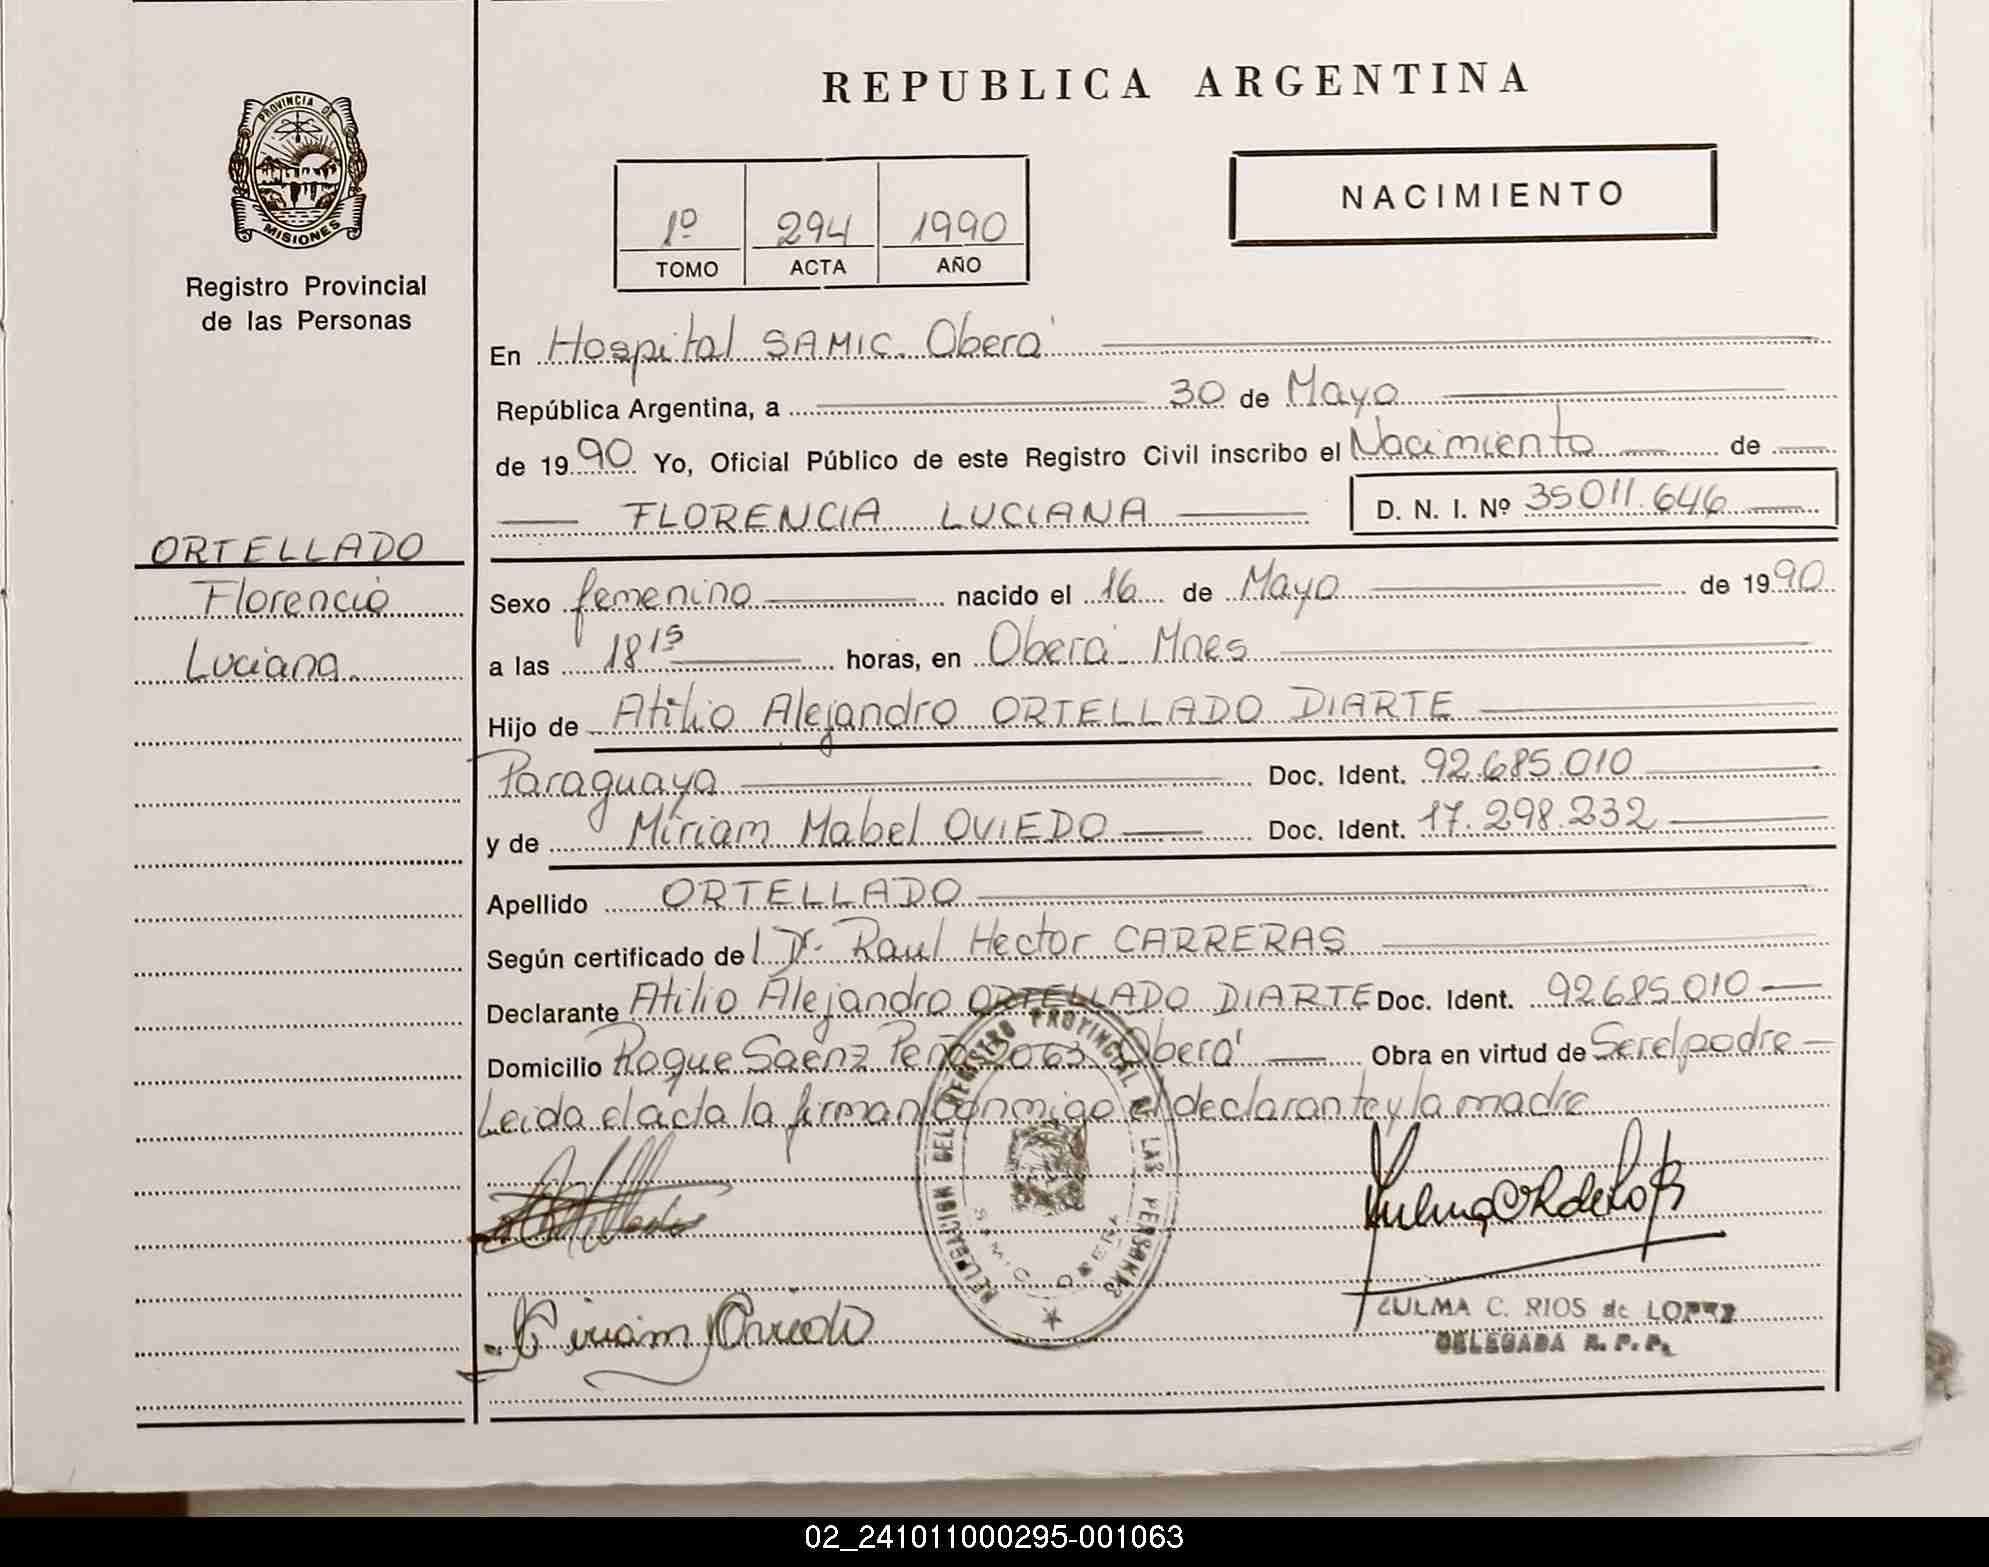 REPUBLICA ARGENTINA
PROVINCIA DE
MISIONES
Registro Provincial
de las Personas
NACIMIENTO
1º 294 1990
TOMO ACTA AÑO
En Hospital SAMIC. Oberá
República Argentina, a 30 de Mayo
de 1990 Yo, Oficial Público de este Registro Civil inscribo el Nacimiento de
FLORENCIA LUCIANA D. N. I. Nº 35011.646
ORTELLADO
Florencia
Luciana.
Sexo femenino nacido el 16 de Mayo de 1990
a las 18¹⁵ horas, en Oberá Mnes
Hijo de Atilio Alejandro ORTELLADO DIARTE
Paraguaya Doc. Ident. 92.685.010
y de Míriam Mabel OVIEDO Doc. Ident. 17.298.232
Apellido ORTELLADO
Según certificado del Dr. Raul Hector CARRERAS
Declarante Atilio Alejandro ORTELLADO DIARTE Doc. Ident. 92.685.010
Domicilio Roque Saenz Peña 2063 Oberá Obra en virtud de Ser el padre
Leida el acta la firman conmigo el declarante y la madre
DELEGACION DEL REGISTRO PROVINCIAL DE LAS PERSONAS
SAMIC OBERA
Miriam Oviedo
ZULMA C. RIOS de LOPEZ
DELEGADA R. P. P.
02_241011000295-001063